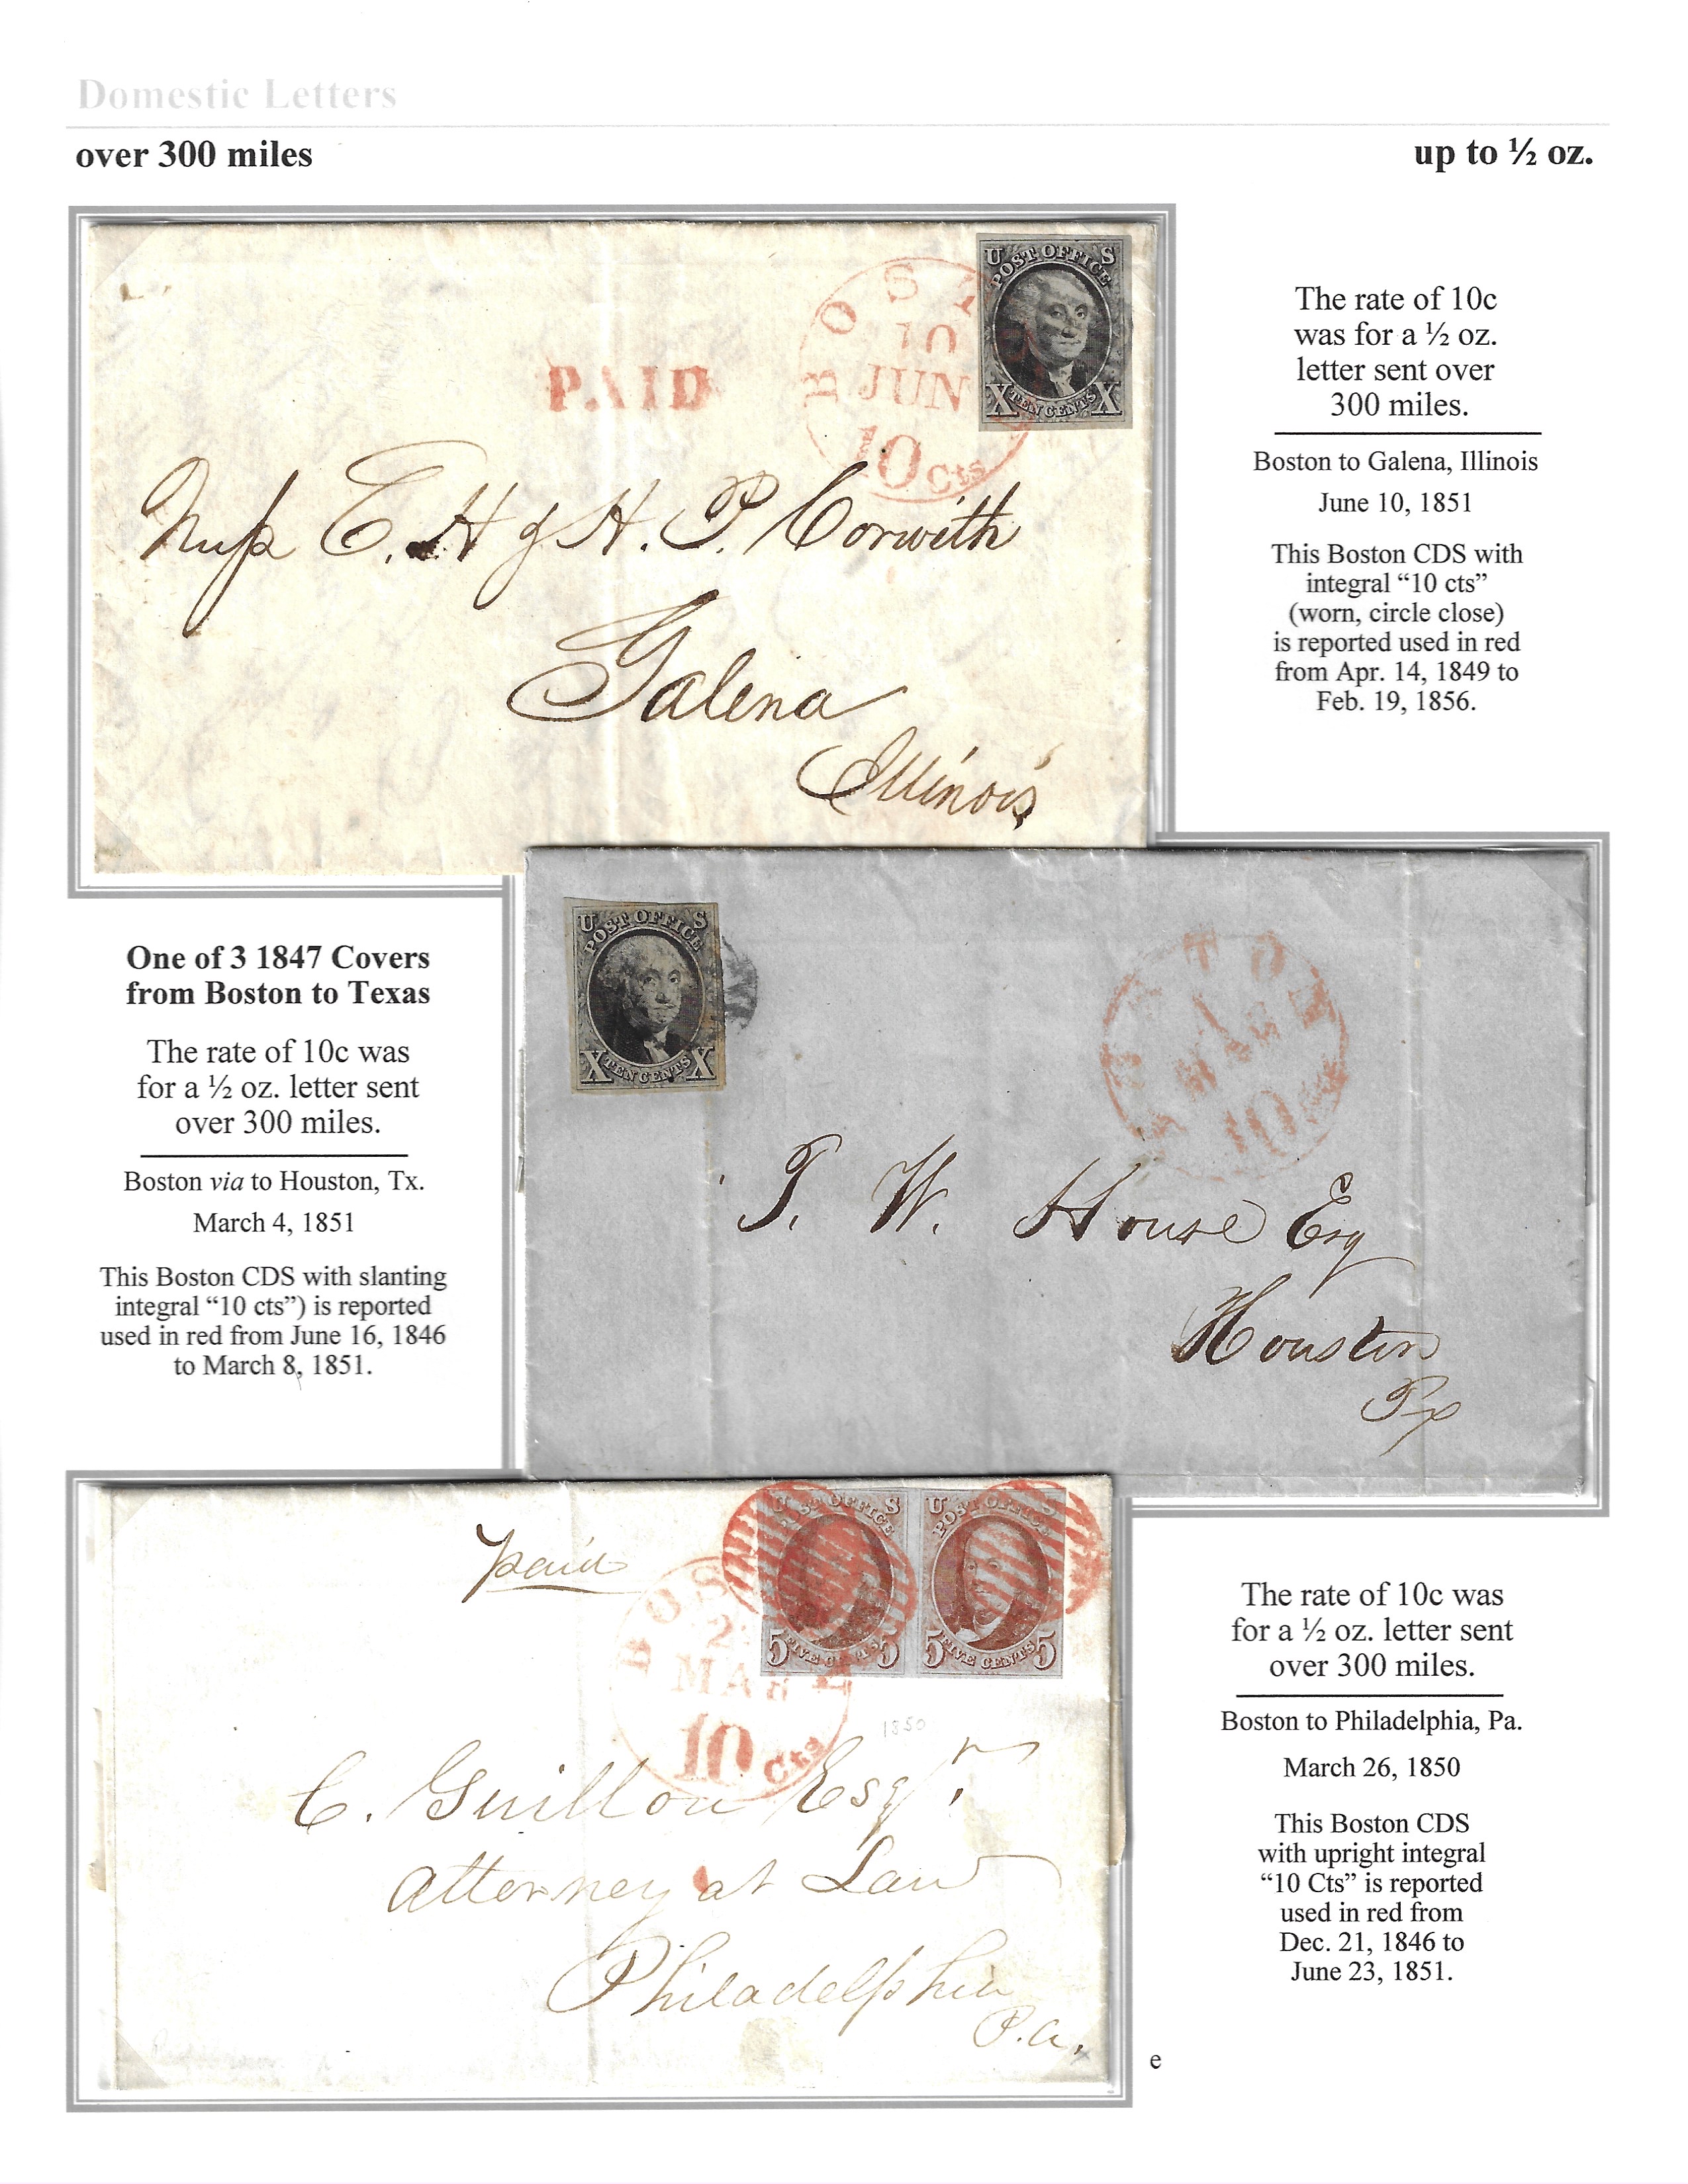 Domestic Letters
over 300 miles
up to ½ oz.
U S
POST OFFICE
X TEN CENTS X
BOST
10
JUN
10 Cts
PAID
E. H & H. P. Corwith
Galena
Illinois
The rate of 10c
was for a ½ oz.
letter sent over
300 miles.
Boston to Galena, Illinois
June 10, 1851
This Boston CDS with
integral “10 cts”
(worn, circle close)
is reported used in red
from Apr. 14, 1849 to
Feb. 19, 1856.
One of 3 1847 Covers
from Boston to Texas
The rate of 10c was
for a ½ oz. letter sent
over 300 miles.
Boston via to Houston, Tx.
March 4, 1851
This Boston CDS with slanting
integral “10 cts”) is reported
used in red from June 16, 1846
to March 8, 1851.
U S
POST OFFICE
X TEN CENTS X
TO
MAR
10
T. W. House Esq
Houston
Tx
paid
BOS
2
MAR
10 Cts
U S
ST OFFICE
5 FIVE CENTS 5
U S
POST OFFICE
5 FIVE CENTS 5
1850
C. Guillou Esqr.
Attorney at Law
Philadelphia
P.a.
The rate of 10c was
for a ½ oz. letter sent
over 300 miles.
Boston to Philadelphia, Pa.
March 26, 1850
This Boston CDS
with upright integral
“10 Cts” is reported
used in red from
Dec. 21, 1846 to
June 23, 1851.
e